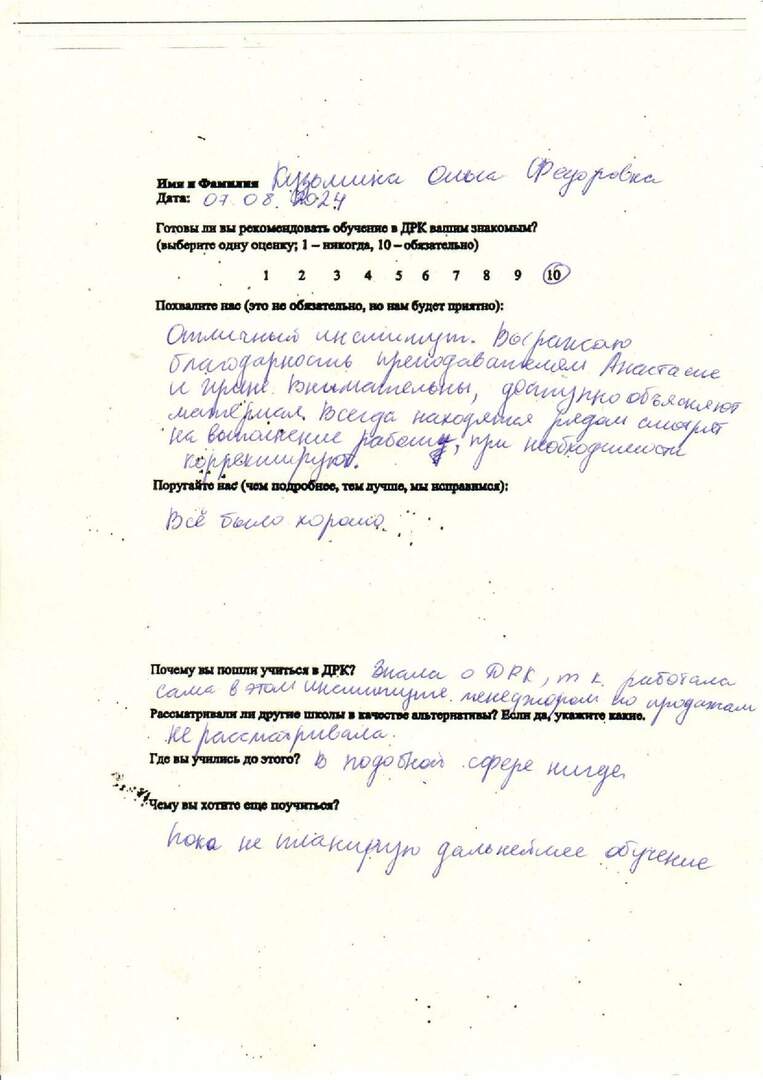 Имя и Фамилия Кузьмина Ольга Федоровна
Дата: 07.08.2024
Готовы ли вы рекомендовать обучение в ДРК вашим знакомым?
(выберите одну оценку; 1 – никогда, 10 – обязательно)
1 2 3 4 5 6 7 8 9 10
Похвалите нас (это не обязательно, но нам будет приятно):
Отличный институт. Выражаю
благодарность преподавателям Анастасие
и Ирине. Внимательны, доступно объясняют
материал. Всегда находятся рядом смотрят
на выполнение работы, при необходимости
корректируют.
Поругайте нас (чем подробнее, тем лучше, мы исправимся):
Всё было хорошо
Почему вы пошли учиться в ДРК? Знала о ДРК, т к. работала
сама в этом институте менеджером по продажам
Рассматривали ли другие школы в качестве альтернативы? Если да, укажите какие.
не рассматривала.
Где вы учились до этого? В подобной сфере нигде
Чему вы хотите еще поучиться?
Пока не планирую дальнейшее обучение